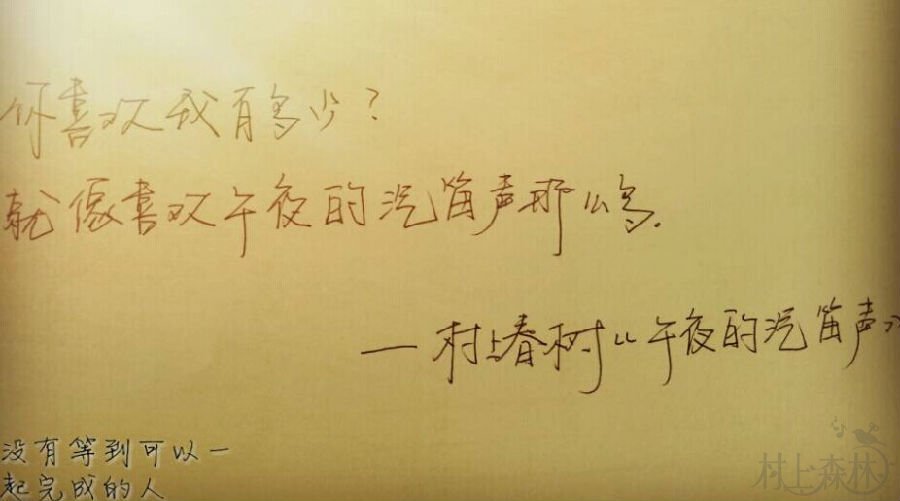 你喜欢我有多少？
就像喜欢午夜的汽笛声那么多.
—村上春树“午夜的汽笛声”
没有等到可以一
起完成的人
村上森林